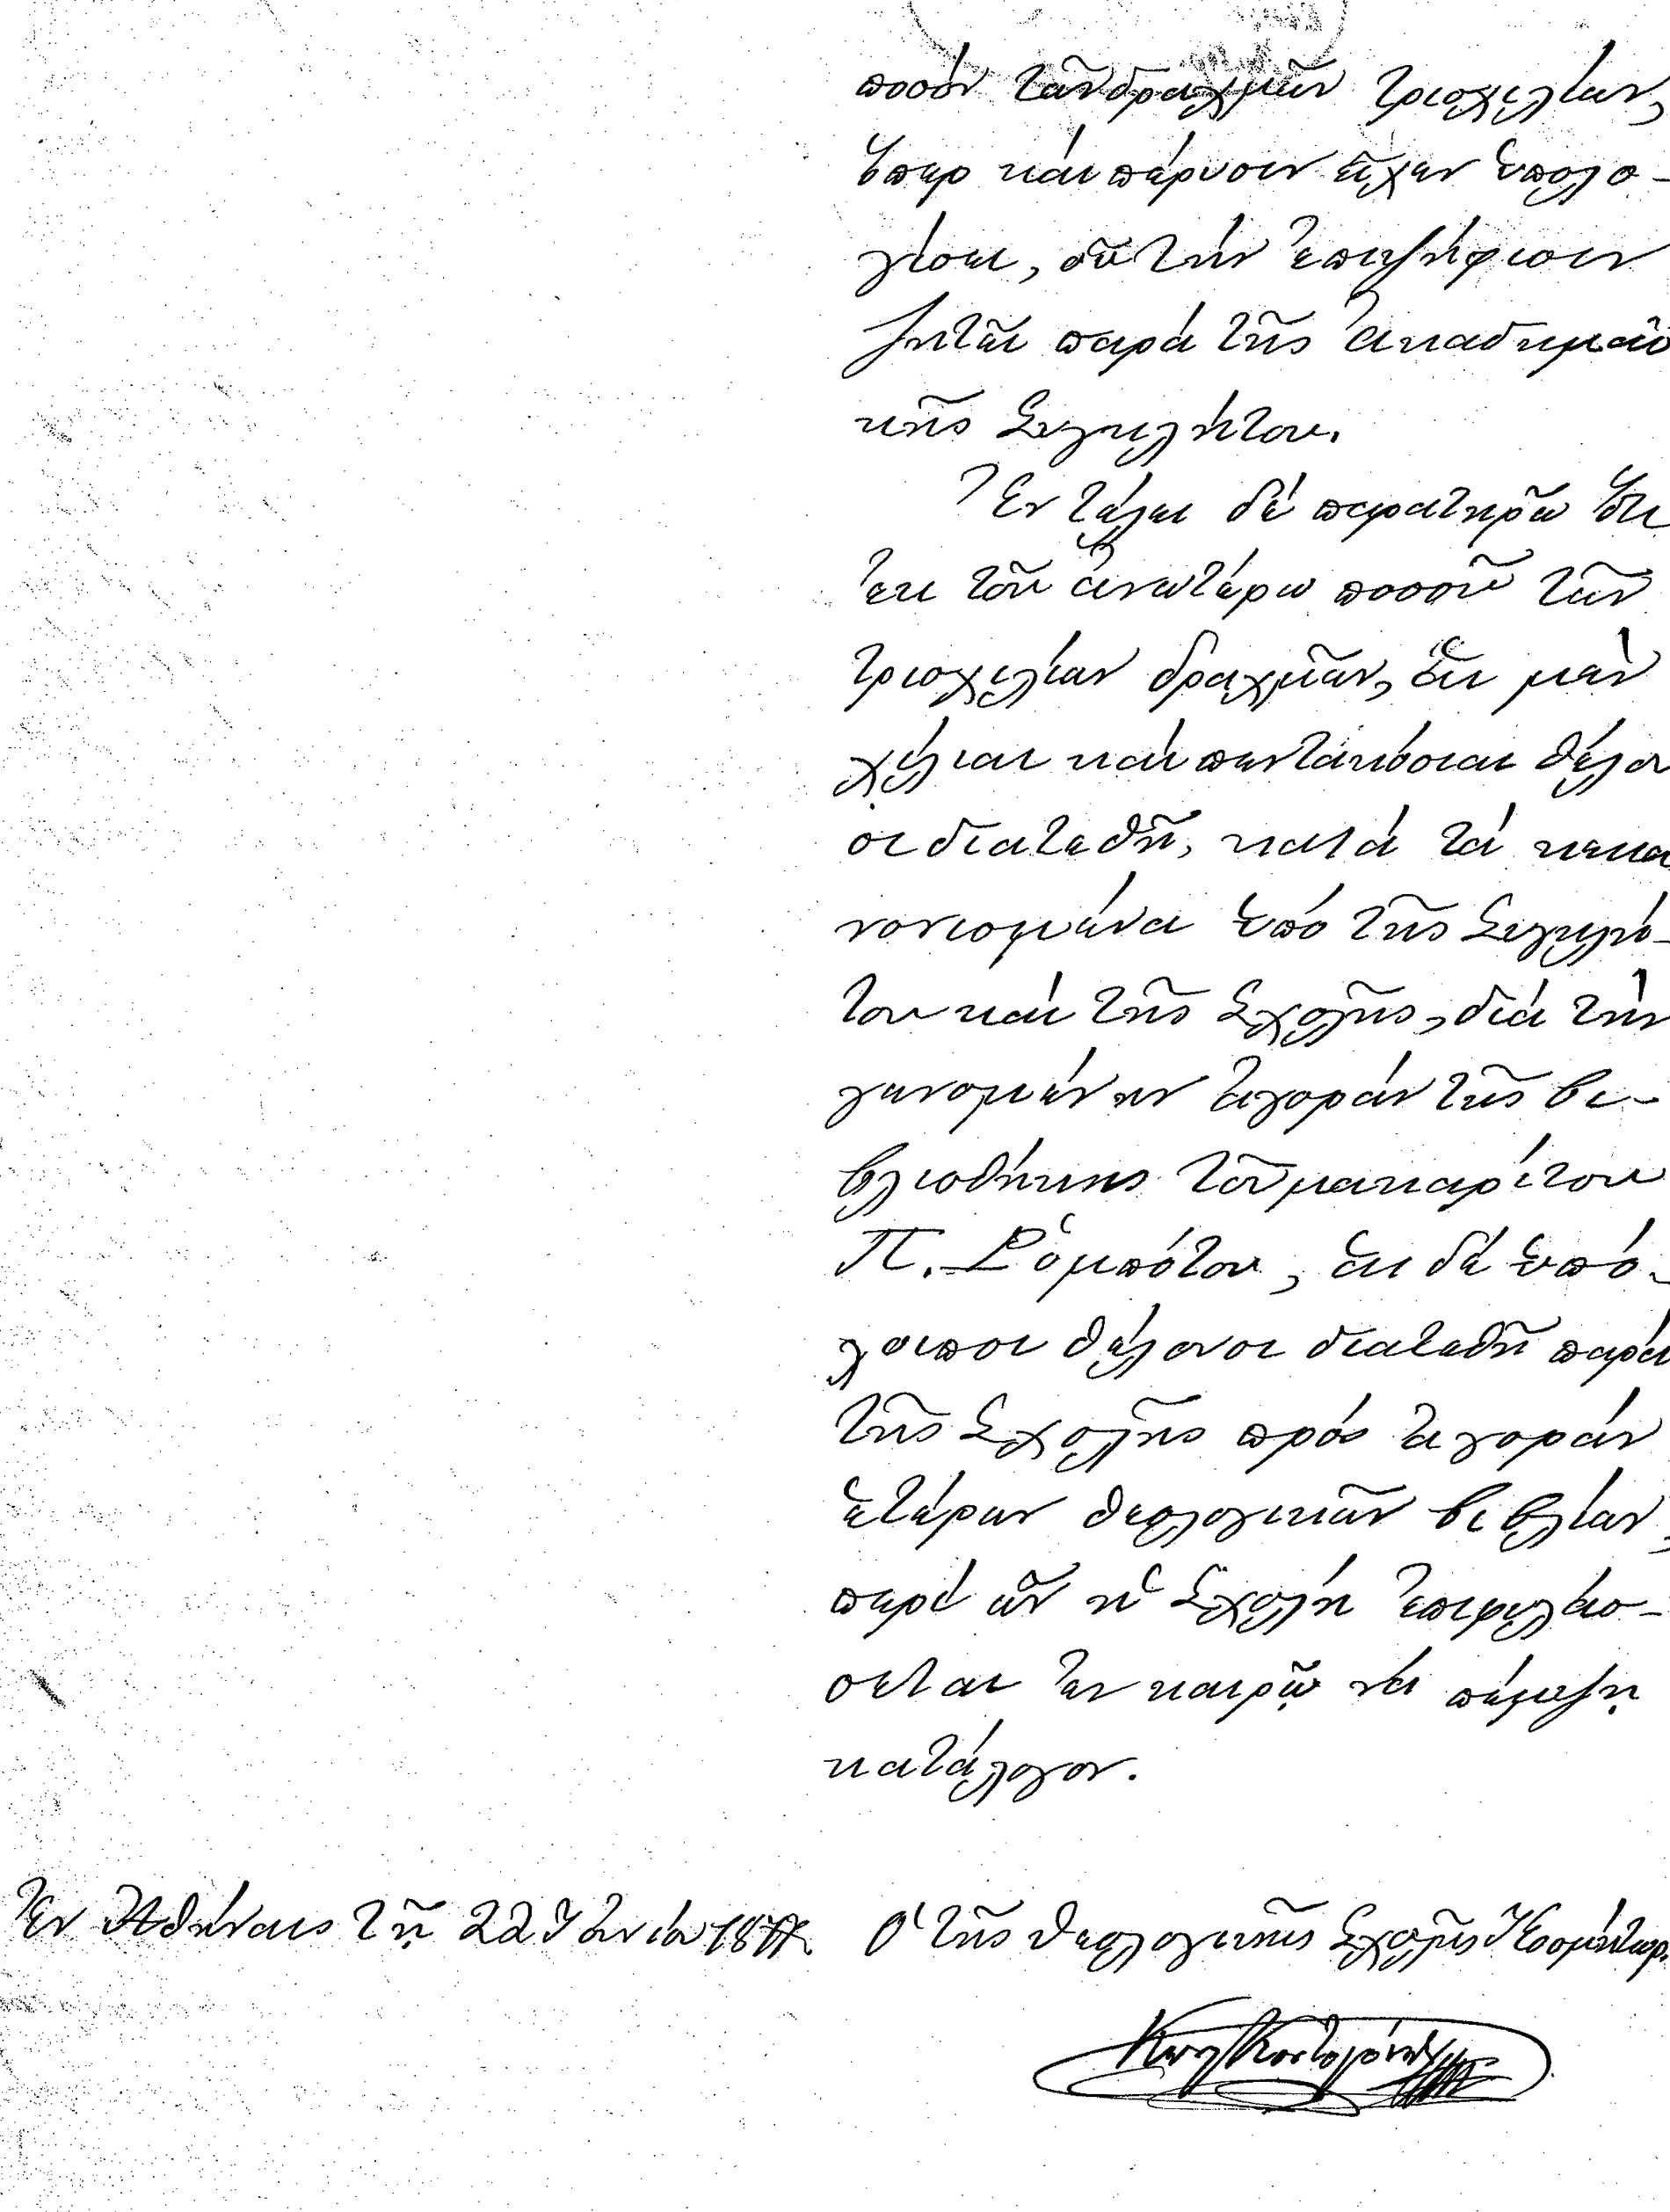 ποσόν τῶν δραχμῶν τρισχιλίων,
ὅπερ καὶ πέρυσιν εἶχεν ὑπολο-
γίσει, οὗ τὴν ἐπιψήφισιν
ζητεῖ παρὰ τῆς Ἀκαδημαϊ
κῆς Συγκλήτου.
Ἐν τέλει δὲ παρατηρῶ ὅτι
ἐκ τοῦ ἀνωτέρω ποσοῦ τῶν
τρισχιλίων δραχμῶν, αἱ μὲν
χίλιαι καὶ πεντακόσιαι θέλου
σι διατεθῆ, κατὰ τὰ κεκα
νονισμένα ὑπὸ τῆς Συγκλή-
του καὶ τῆς Σχολῆς, διὰ τὴν
γενομένην ἀγορὰν τῆς βι-
βλιοθήκης τοῦ μακαρίτου
Π. Ῥομπότου, αἱ δὲ ὑπό-
λοιποι θέλουσι διατεθῆ παρὰ
τῆς Σχολῆς πρὸς ἀγορὰν
ἑτέρων θεολογικῶν βιβλίων,
περὶ ὧν ἡ Σχολὴ ἐπιφυλάσ-
σεται ἐν καιρῷ νὰ πέμψῃ
κατάλογον.
Ἐν Ἀθήναις τῇ 22 Ἰουνίου Ὁ τῆς Θεολογικῆς Σχολῆς Κοσμήτωρ.